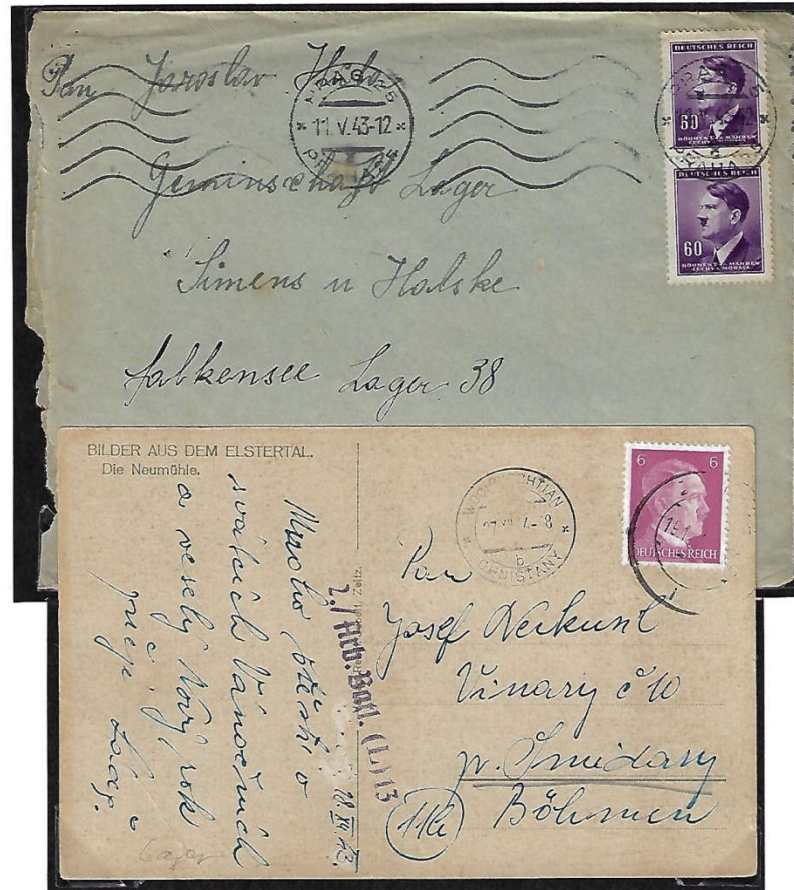 Pan Jaroslav
PRAG 25
11.V.43-12
PRAHA 25
DEUTSCHES REICH
60
BÖHMEN u. MÄHREN
ČECHY a MORAVA
DEUTSCHES REICH
60
BÖHMEN u. MÄHREN
ČECHY a MORAVA
Geminschaft Lager
Simens u Halske
falkensee Lager 38
BILDER AUS DEM ELSTERTAL.
Die Neumühle.
Mnoho štěstí o
svátcích Vánočních
a veselý Nový rok
přeje
Zeitz.
2./Arb.Batl. (L) 13
18.XII.43.
Lager
6 6
DEUTSCHES REICH
Pan
Josef
Vinary č 10
p. Smidary
(11b) Böhmen